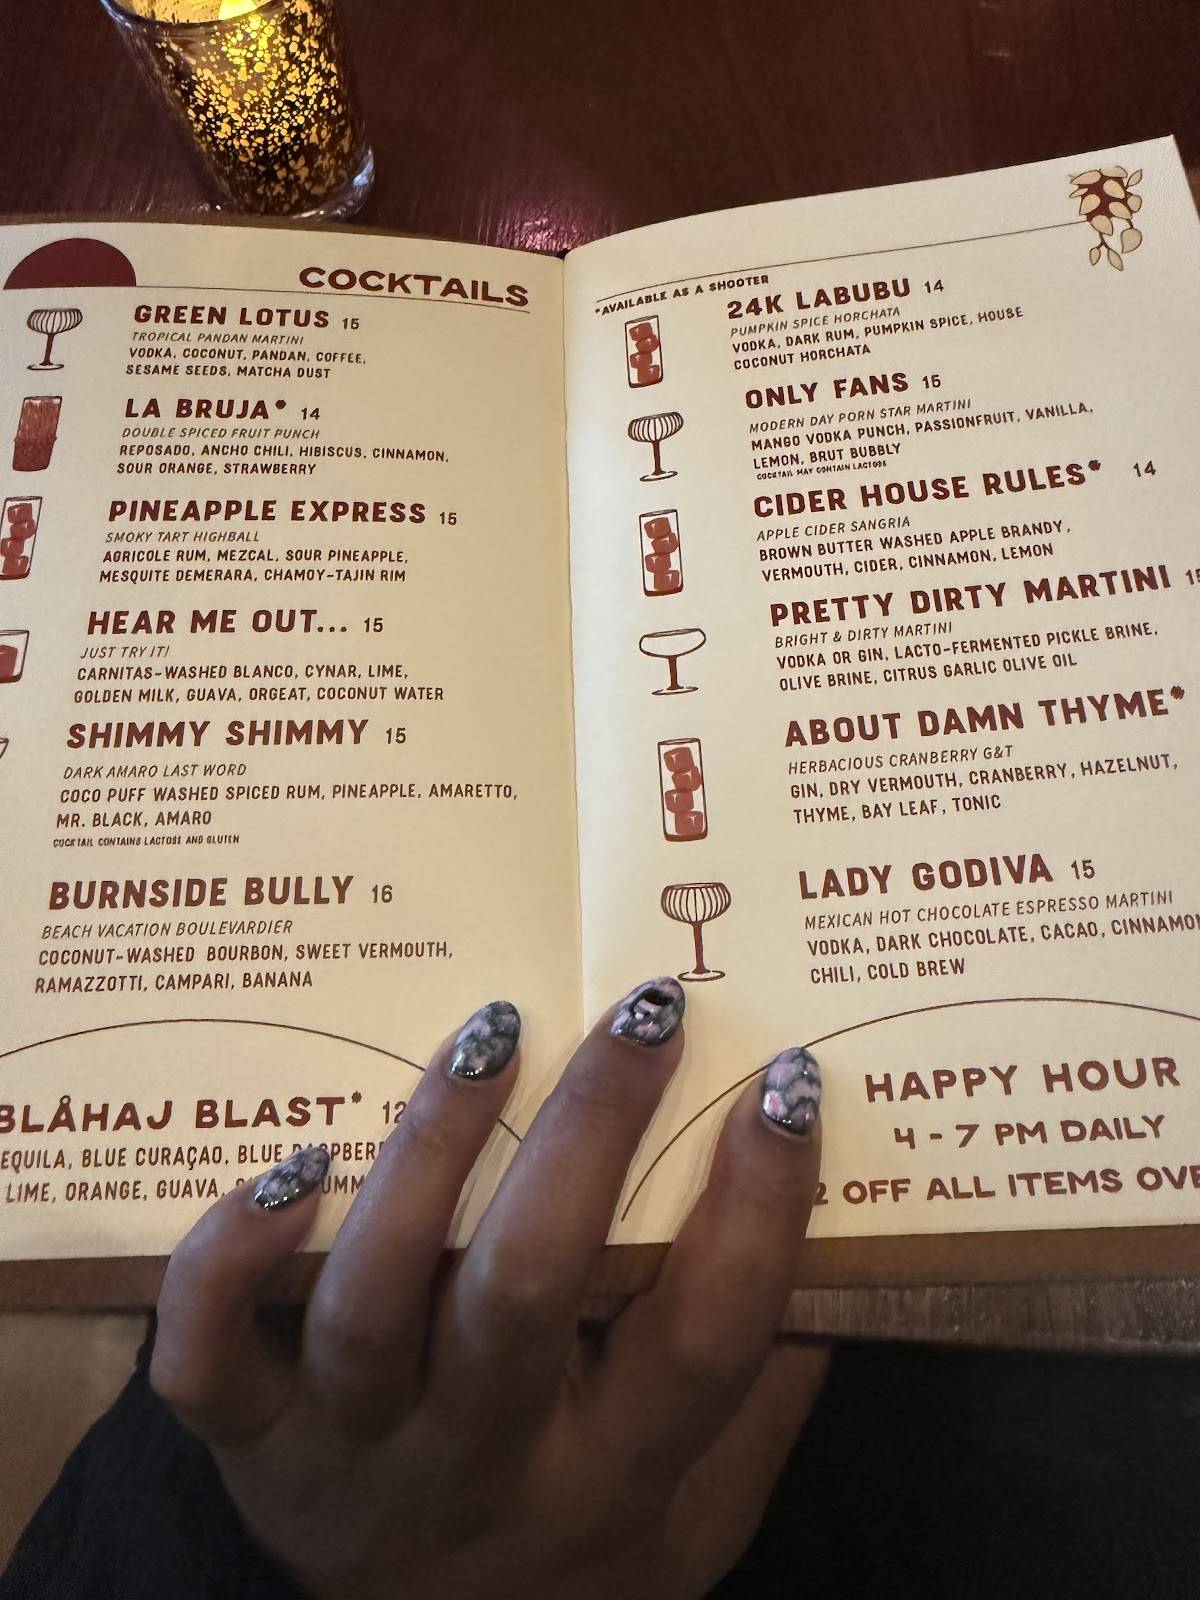 COCKTAILS
GREEN LOTUS 15
TROPICAL PANDAN MARTINI
VODKA, COCONUT, PANDAN, COFFEE,
SESAME SEEDS, MATCHA DUST
LA BRUJA* 14
DOUBLE SPICED FRUIT PUNCH
REPOSADO, ANCHO CHILI, HIBISCUS, CINNAMON,
SOUR ORANGE, STRAWBERRY
PINEAPPLE EXPRESS 15
SMOKY TART HIGHBALL
AGRICOLE RUM, MEZCAL, SOUR PINEAPPLE,
MESQUITE DEMERARA, CHAMOY-TAJIN RIM
HEAR ME OUT... 15
JUST TRY IT!
CARNITAS-WASHED BLANCO, CYNAR, LIME,
GOLDEN MILK, GUAVA, ORGEAT, COCONUT WATER
SHIMMY SHIMMY 15
DARK AMARO LAST WORD
COCO PUFF WASHED SPICED RUM, PINEAPPLE, AMARETTO,
MR. BLACK, AMARO
COCKTAIL CONTAINS LACTOSE AND GLUTEN
BURNSIDE BULLY 16
BEACH VACATION BOULEVARDIER
COCONUT-WASHED BOURBON, SWEET VERMOUTH,
RAMAZZOTTI, CAMPARI, BANANA
BLÅHAJ BLAST* 12
EQUILA, BLUE CURAÇAO, BLUE
LIME, ORANGE, GUAVA,
*AVAILABLE AS A SHOOTER
24K LABUBU 14
PUMPKIN SPICE HORCHATA
VODKA, DARK RUM, PUMPKIN SPICE, HOUSE
COCONUT HORCHATA
ONLY FANS 15
MODERN DAY PORN STAR MARTINI
MANGO VODKA PUNCH, PASSIONFRUIT, VANILLA,
LEMON, BRUT BUBBLY
COCKTAIL MAY CONTAIN LACTOSE
CIDER HOUSE RULES* 14
APPLE CIDER SANGRIA
BROWN BUTTER WASHED APPLE BRANDY,
VERMOUTH, CIDER, CINNAMON, LEMON
PRETTY DIRTY MARTINI 15
BRIGHT & DIRTY MARTINI
VODKA OR GIN, LACTO-FERMENTED PICKLE BRINE,
OLIVE BRINE, CITRUS GARLIC OLIVE OIL
ABOUT DAMN THYME*
HERBACIOUS CRANBERRY G&T
GIN, DRY VERMOUTH, CRANBERRY, HAZELNUT,
THYME, BAY LEAF, TONIC
LADY GODIVA 15
MEXICAN HOT CHOCOLATE ESPRESSO MARTINI
VODKA, DARK CHOCOLATE, CACAO, CINNAMON
CHILI, COLD BREW
HAPPY HOUR
4 - 7 PM DAILY
2 OFF ALL ITEMS OVE